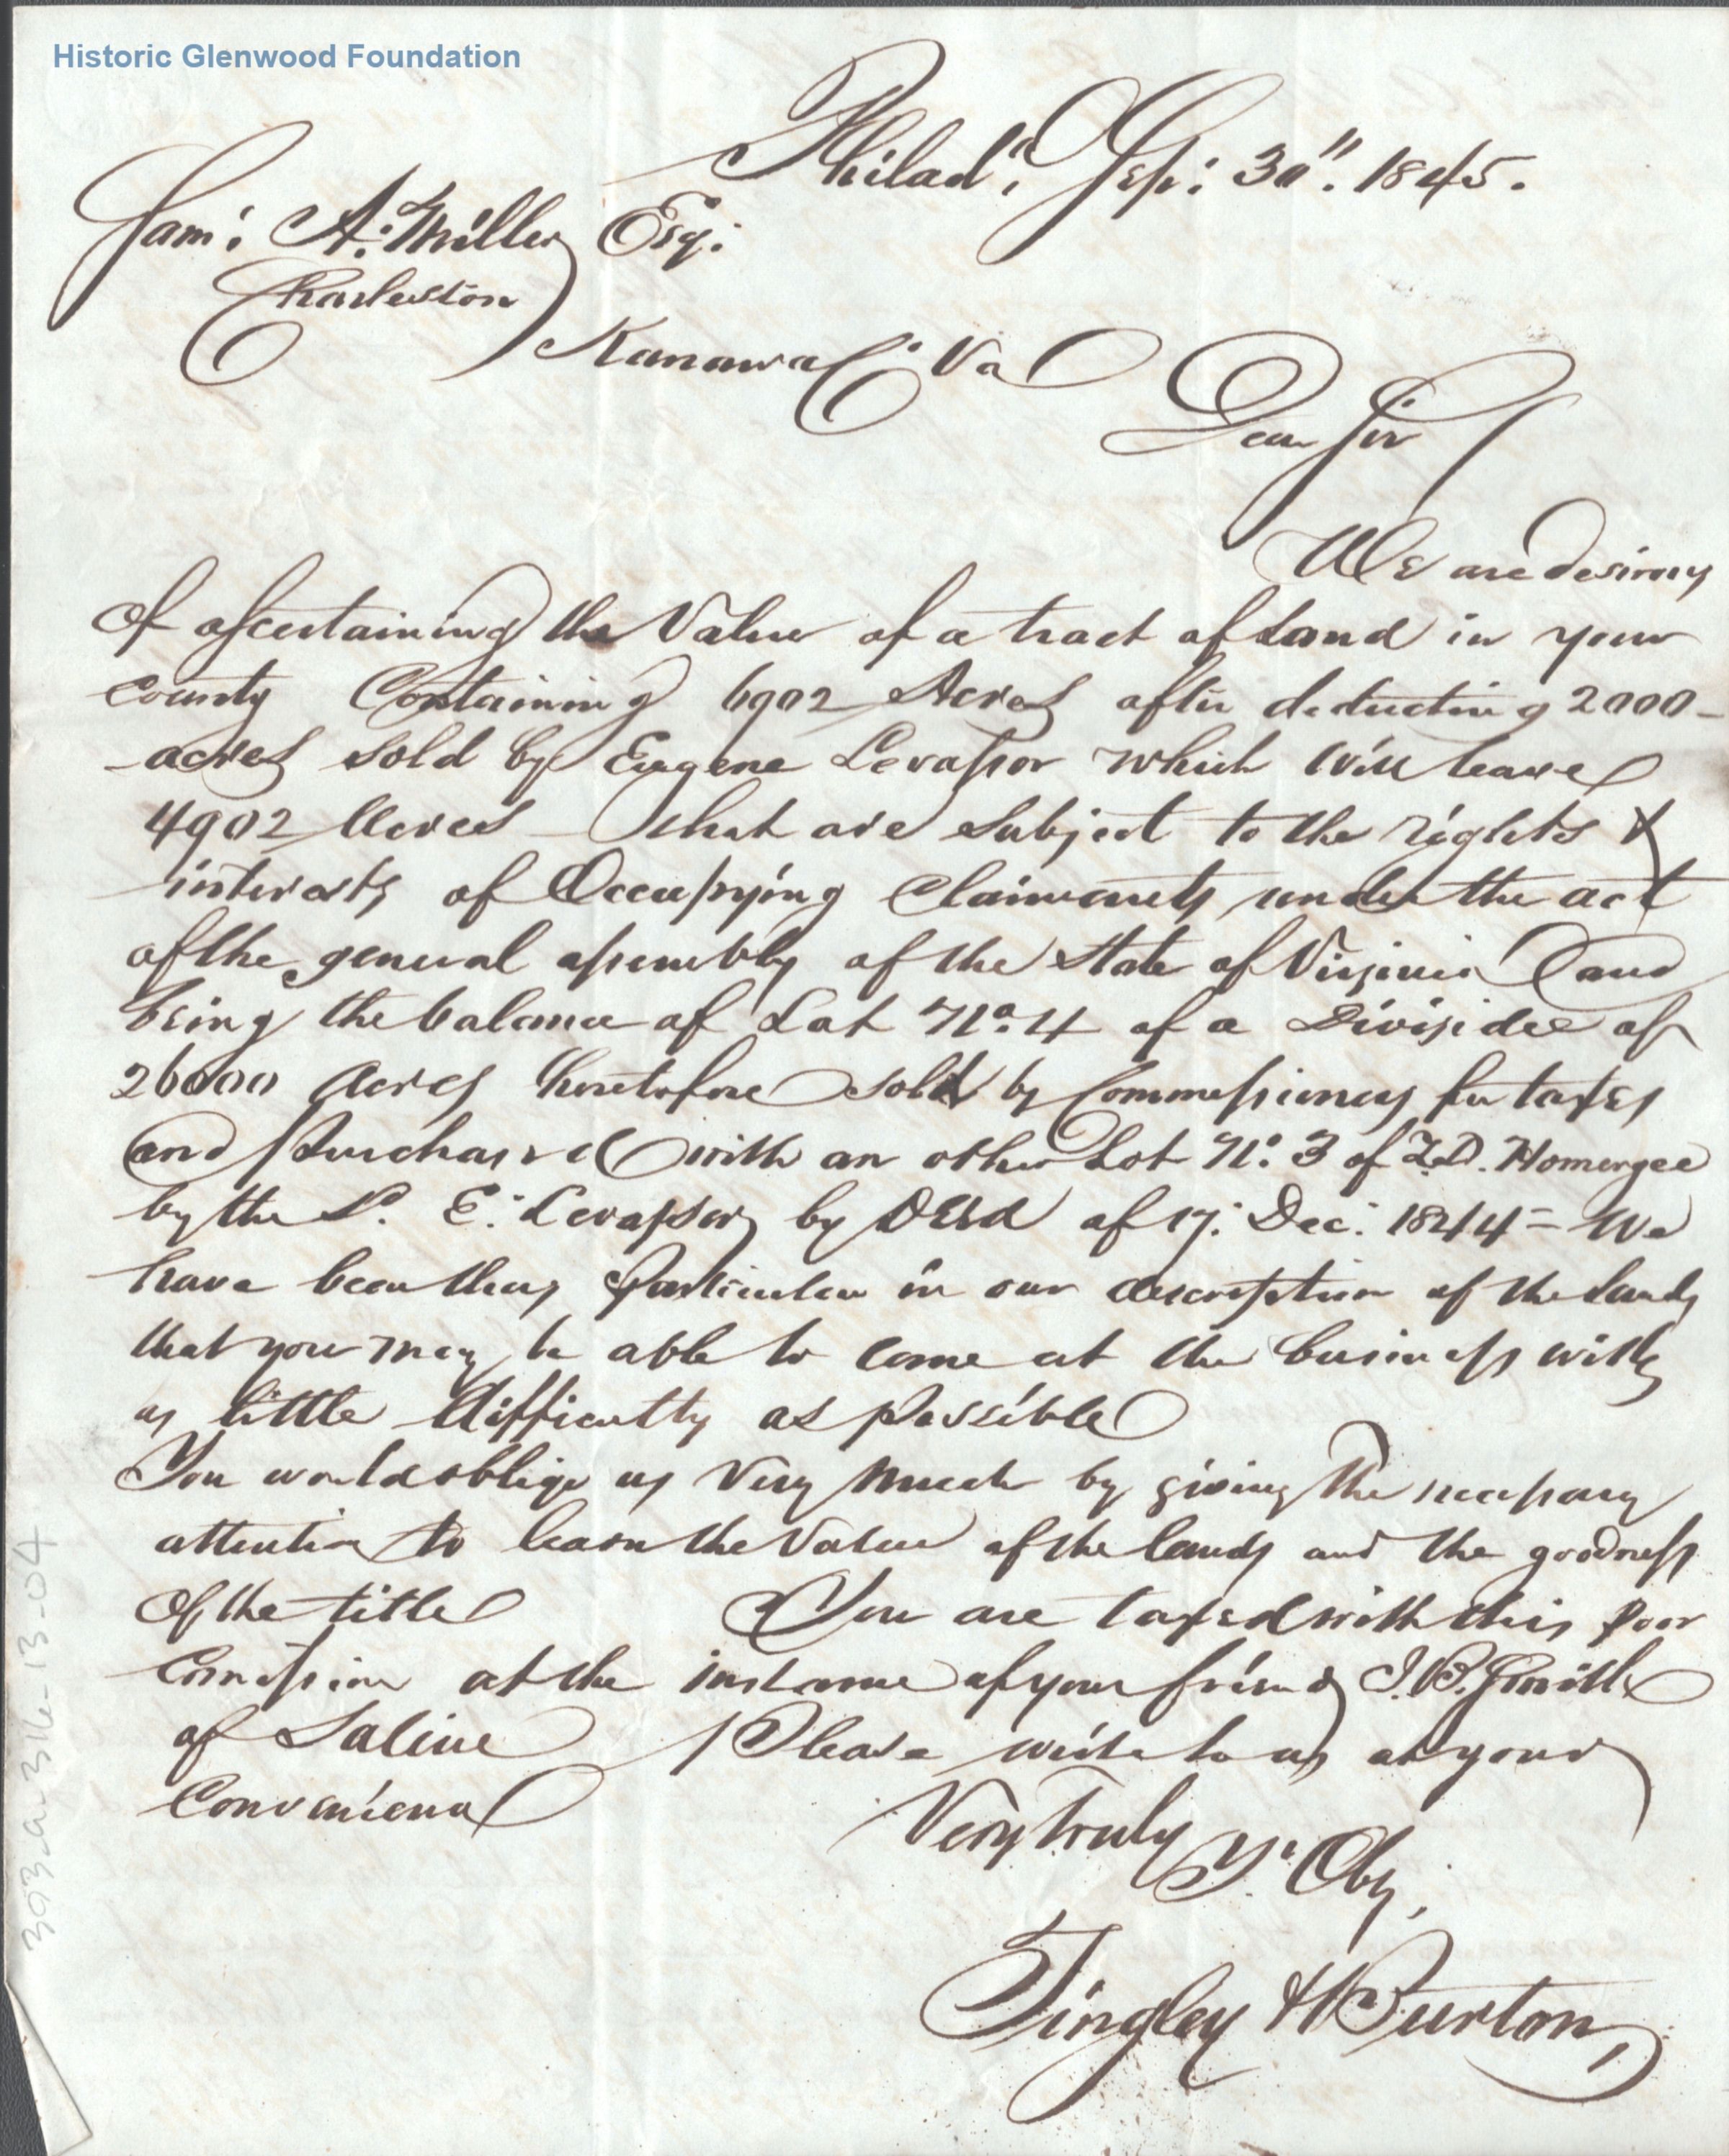 Historic Glenwood Foundation
Philad.ª Sep: 30". 1845.
Sam: A. Miller Esq:
Charleston
Kanawa C: Va
Dear Sir
We are desirous
of ascertaining the Value of a tract of Land in your
County Containing 6902 Acres after deducting 2000
acres sold by Eugene Levassor which will leave
4902 Acres that are subject to the rights &
interests of Occupying Claimants under the act
of the general assembly of the State of Virginia and
being the balance of Lot Nº. 4 of a of
26000 Acres heretofore sold by Commissioners for taxes
and Purchased with an other Lot Nº. 3 of Homergee
by the S. E. Levassor by Deed of 17. Dec: 1844 = We
have been thus Particular in our description of the Lands
that you may be able to come at the business with
as little difficulty as possible
You would oblige us Very Much by giving the necessary
attention to learn the Value of the lands and the goodness
of the title You are taxed with this poor
Comission at the instance of your friend I. B. Smith
of Saline Please write to us at your
Convenience
Very truly
Yr. Obt.
Tingley & Burton
303-a-316-13-04